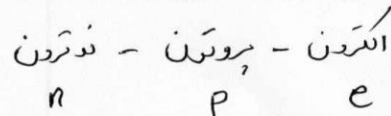 الکترون - پروتون - نوترون
n p e